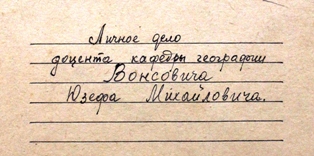 Личное дело
доцента кафедры географии
Вонсовича
Юзефа Міхайловича.